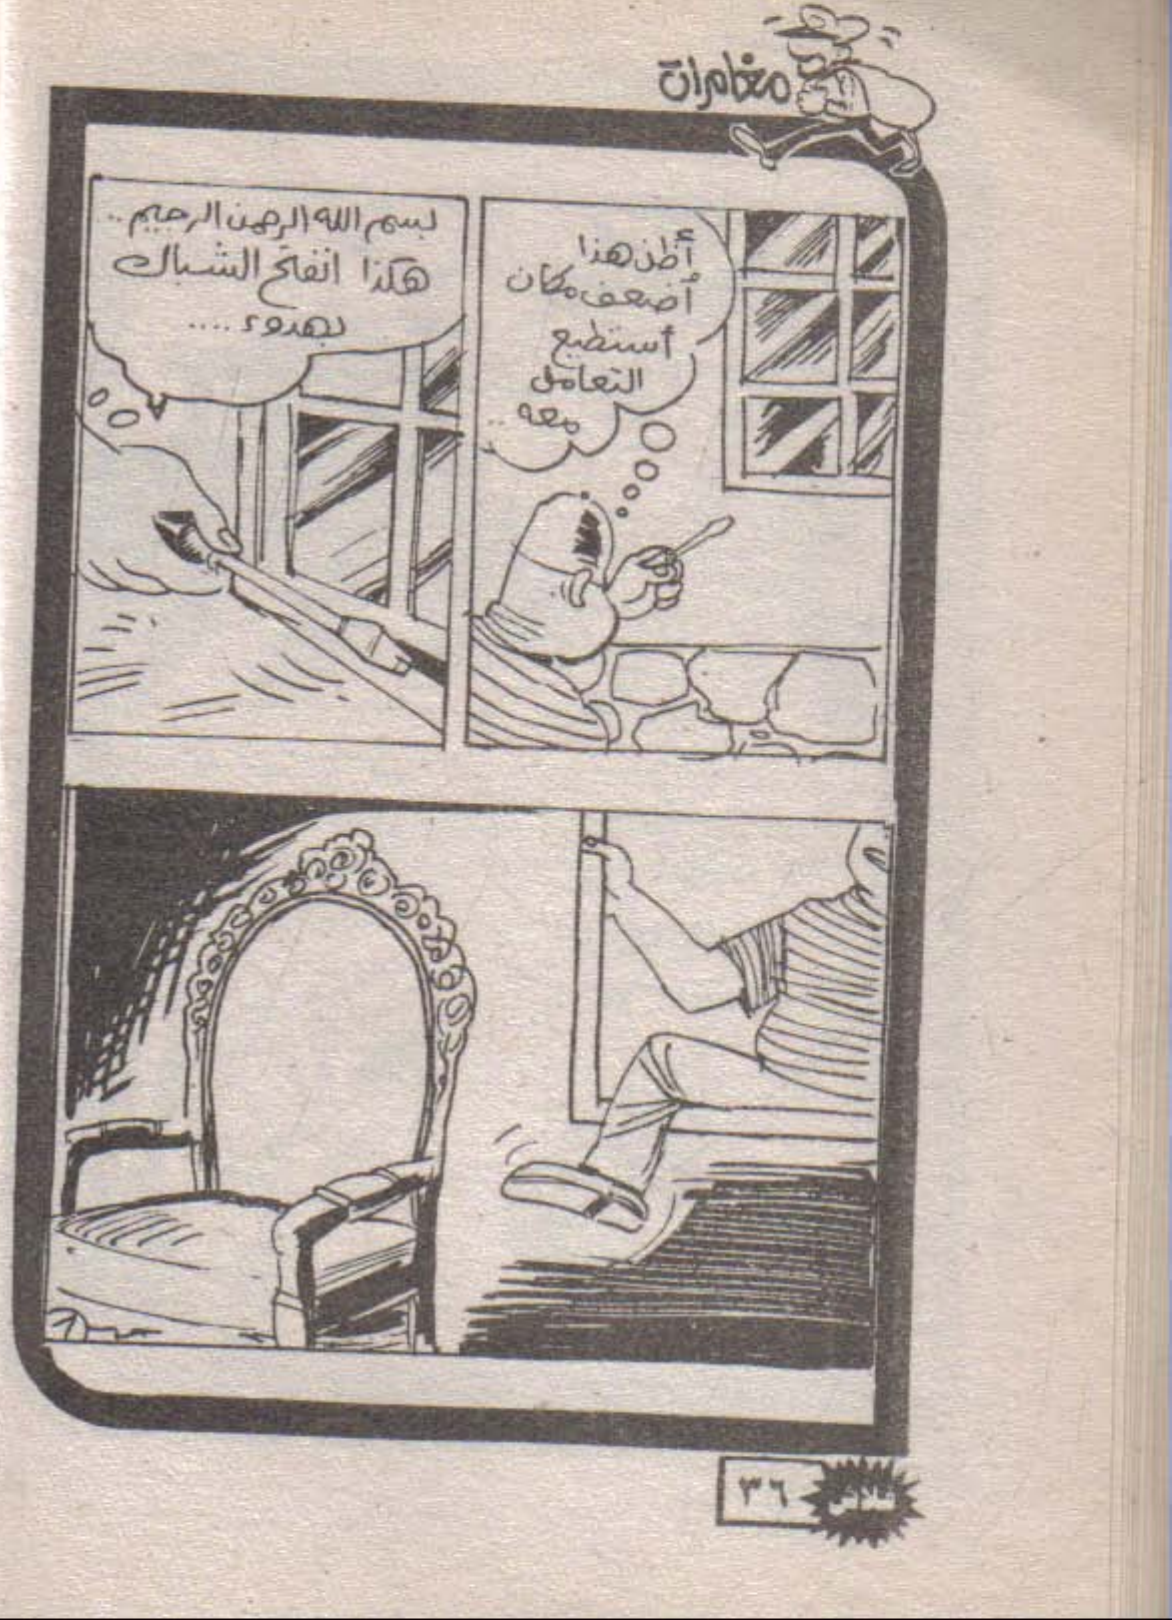 مغامرات
أظن هذا
أضعف مكان
أستطيع
التعامل
معه..
بسم الله الرحمن الرحيم..
هكذا انفتح الشباك
بهدوء....
٣٦